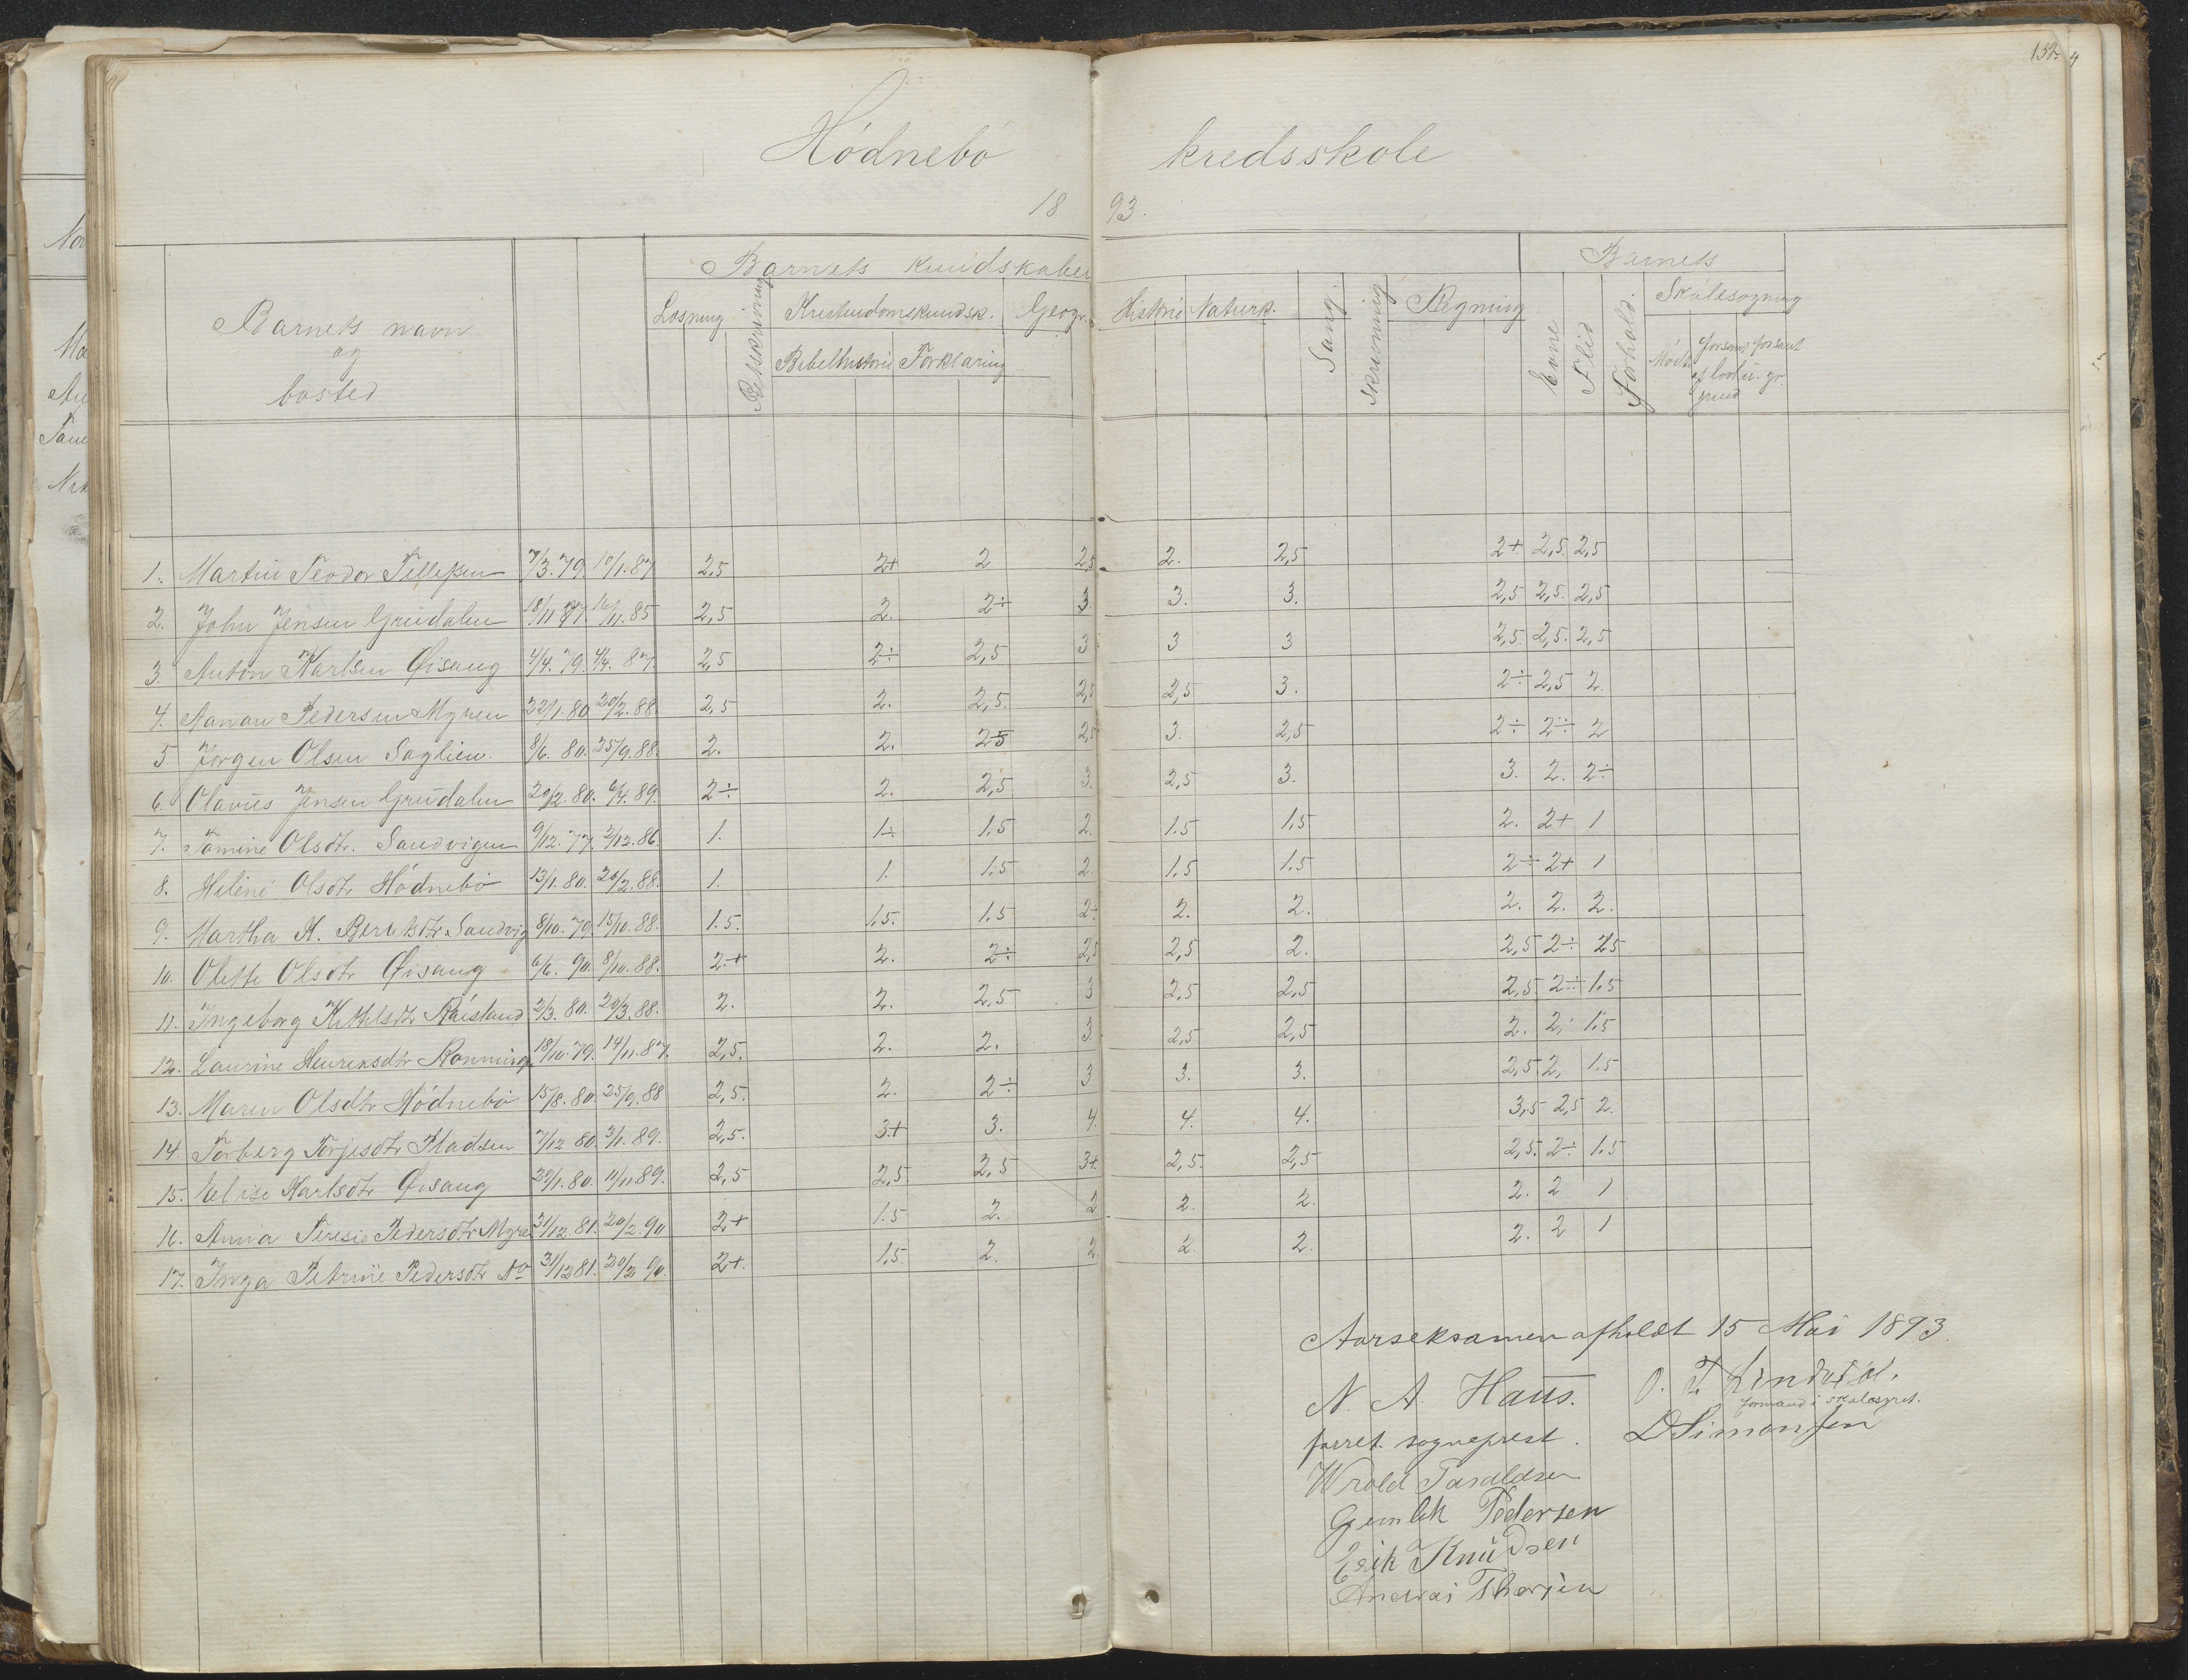 132.
Hódnebó kredsskole
1893.
Barnets kundskaber
Barnets
Barnets navn
og
bosted
Læsning Retskrivning Kristendomskundsk. Geogr. Historie Naturk. Sang. Skrivning Regning Evne Flid Forhold. Skólesøgning
Bibelhistorie Forklaring
Mødt forsømt af lovl. grund forsømt u. gr.
1. Martin Teodor Tellefsen 7/3.79. 10/1.87 2,5 2+ 2 2,5 2. 2,5 2+ 2,5. 2,5
2. John Jensen Grüdalen 18/11 16/11.85 2,5 2. 2÷ 3. 3. 3. 2,5 2,5. 2,5
3. Anton Karlsen Øisang 4/4.79. 4/4. 87. 2,5 2÷ 2,5 3 3 3 2,5. 2,5. 2,5
4. Aanon Pedersen Myren 22/1.80 20/2.88. 2,5 2. 2,5. 2,5 2,5 3. 2÷ 2,5 2.
5 Jørgen Olsen Saglien. 8/6. 80. 25/9.88. 2. 2. 2,5 2,5 3. 2,5 2÷ 2÷ 2
6. Olavus Jensen Grüdalen 20/12.80. 6/4.89. 2÷ 2. 2,5 3. 2,5 3. 3. 2. 2÷
7. Tomine Olsdtr. Sandvigen 9/12.77. 2/12.86. 1. 1÷ 1.5 2. 1.5 1.5 2. 2+ 1
8. Heline Olsdtr Hódnebó 13/1.80. 20/2.88. 1. 1. 1.5 2. 1.5 1.5 2÷ 2+ 1
9. Martha K. Berntsdtr. Sandvig 8/10.79. 15/10.88. 1.5. 1.5. 1.5 2÷ 2. 2. 2. 2. 2.
10. Olette Olsdtr Øisang 6/6. 90. 8/10.88. 2.+ 2. 2÷ 2,5 2,5 2. 2,5 2÷ 2,5
11. Ingeborg Kithlsdtr Røisland 2/3.80. 20/3.88. 2. 2. 2,5 3 2,5 2,5 2,5. 2÷ 1.5
12. Laurine Henriksdtr Rønningen 18/10.79. 14/11.87. 2,5. 2. 2. 3. 2,5 2,5 2. 2. 1.5
13. Maren Olsdtr Hódnebó 15/8.80. 25/9.88 2,5. 2. 2÷ 3 3. 3. 2,5 2, 1.5
14. Torberg Torjesdtr Pladsen 7/12 80. 3/1.89. 2,5. 3+ 3. 4. 4. 4. 3,5 2,5 2.
15. Nelise Karlsdtr Øisang 29/1.80. 11/11.89. 2,5 2,5. 2,5 3+. 2,5. 2,5 2,5. 2÷ 1.5
16. Anna Teresie Pedersdtr Myren 31/12.81. 20/2.90 2+ 1.5 2. 2 2. 2. 2. 2 1
17. Inga Petrine Pedersdtr Do 31/12 81. 20/2 90. 2+. 1,5. 2. 2. 2. 2. 2. 2 1
Aarseksamen afholdt 15 Mai 1893.
N. A. Haus. O. T. Lindstøl.
forret. sogneprest. formand i skolestyret.
D Simonsen
Wrold Taraldsen
Gjemlek Pedersen
Erik Knudsen
Andreas Therjen